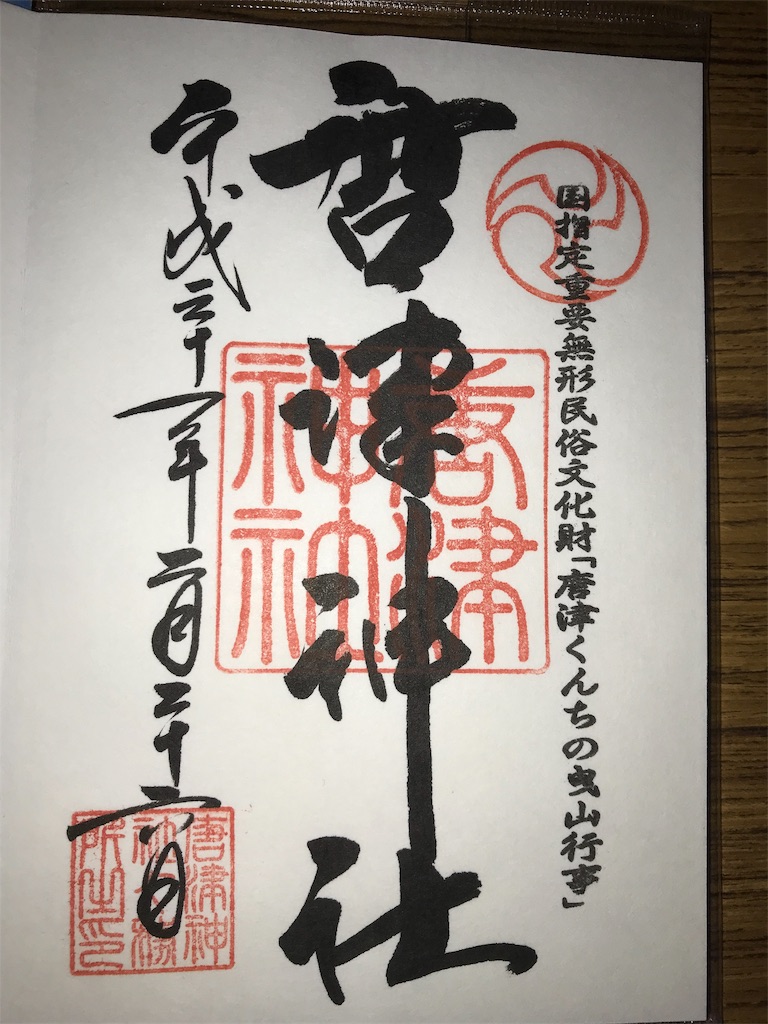 国指定重要無形民俗文化財「唐津くんちの曳山行事」
唐津神社
唐津
神社
平成三十一年二月二十六日
唐津神
社社務
所之印